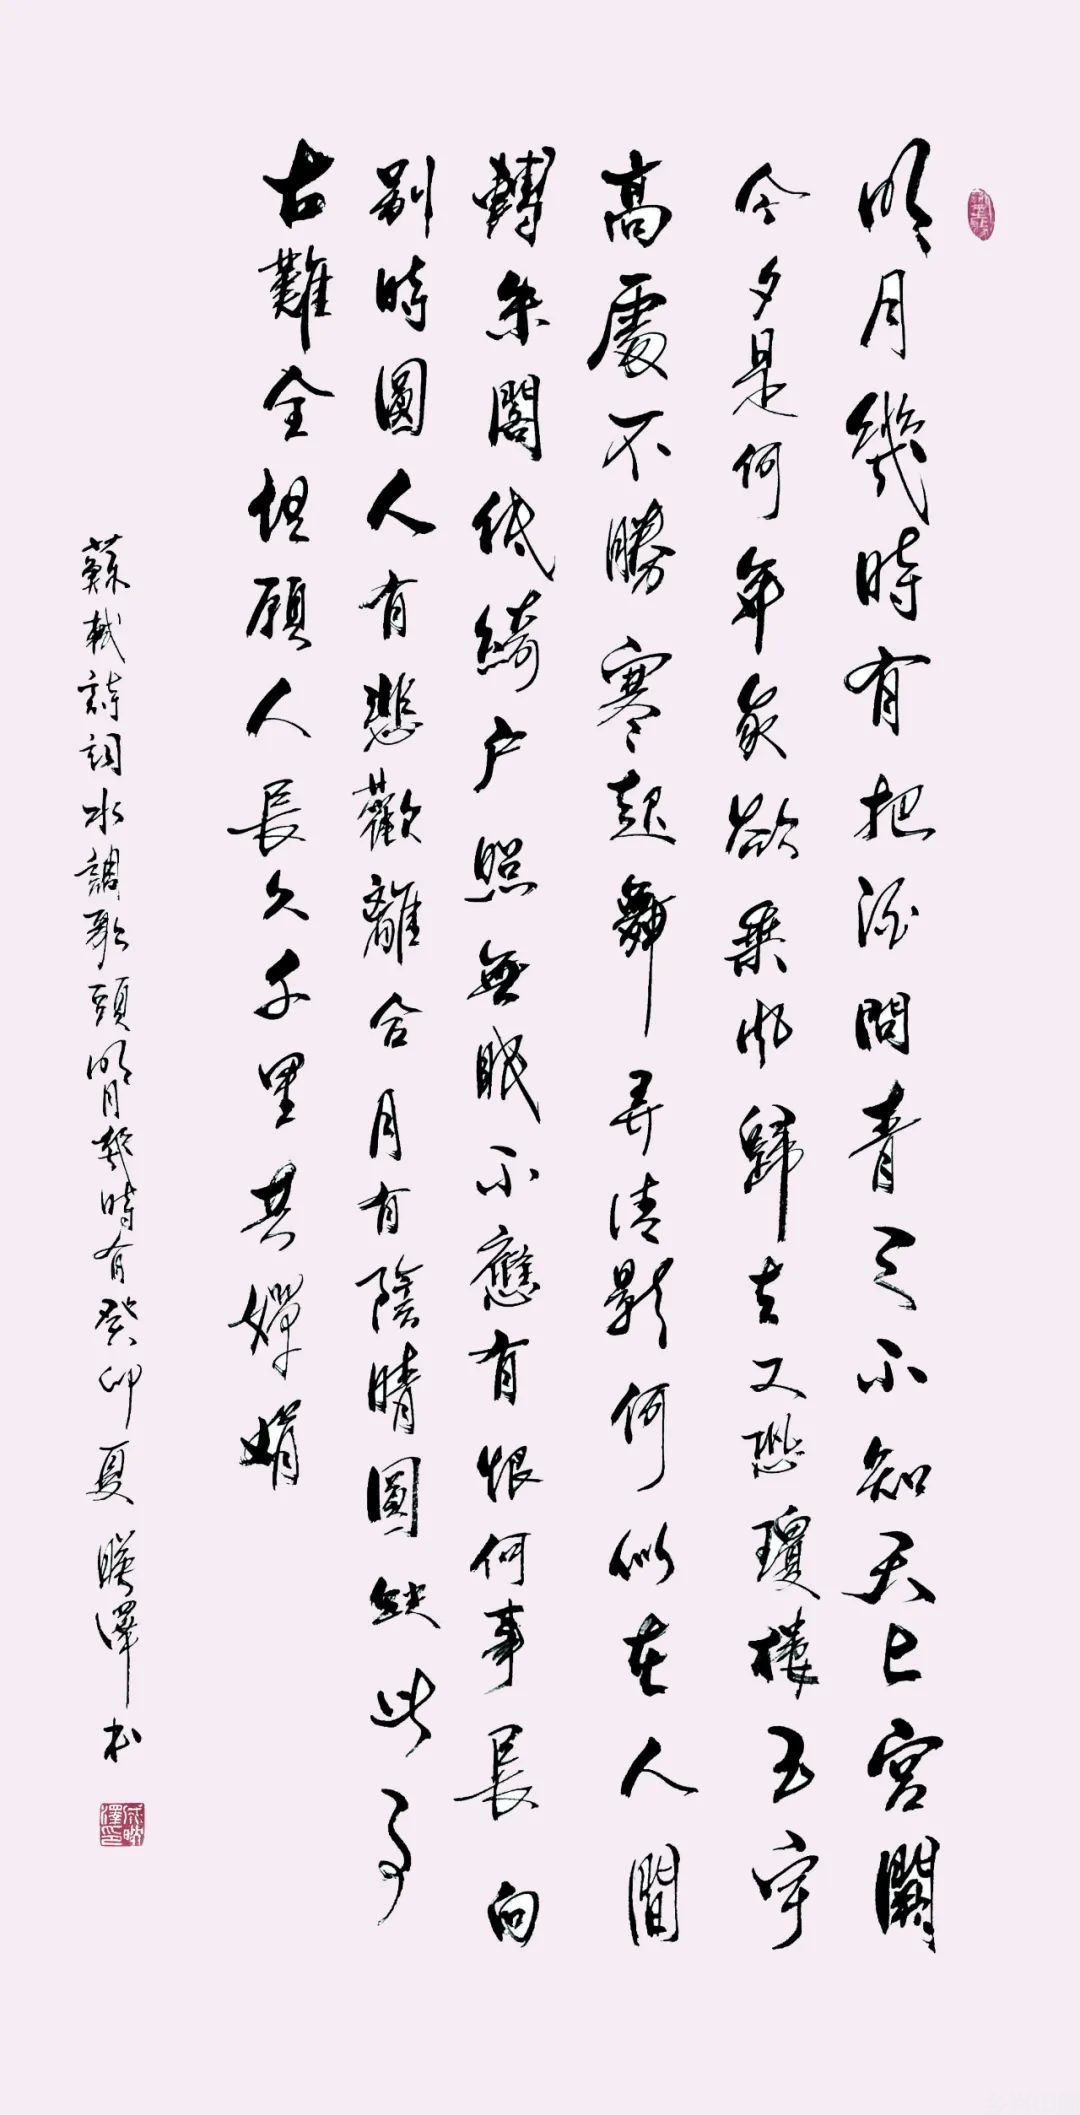 明月幾時有把酒問青天不知天上宮闕
今夕是何年我欲乘風歸去又恐瓊樓玉宇
高處不勝寒起舞弄清影何似在人間
轉朱閣低綺户照無眠不應有恨何事長向
别時圓人有悲歡離合月有陰晴圓缺此事
古難全但願人長久千里共嬋娟
蘇軾詩詞水調歌頭明月幾時有癸卯夏暎澤書